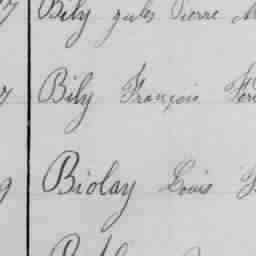 7 Bily jules Pierre
7 Bily François
9 Biolay Louis